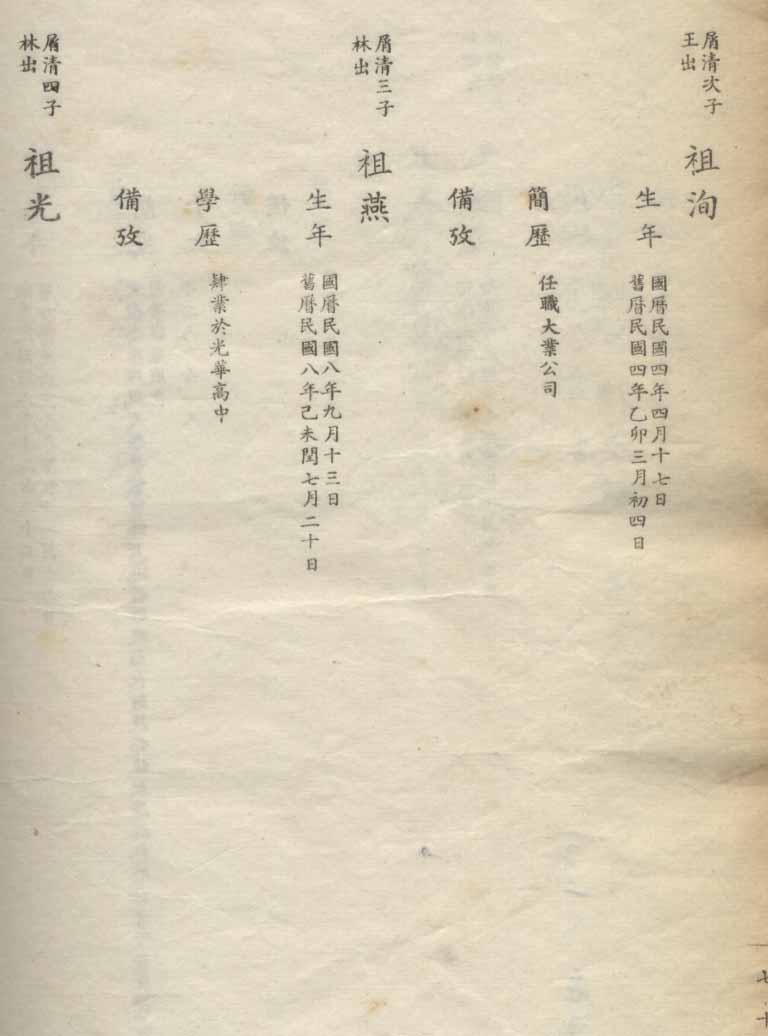 屑清次子
王出
祖洵
生年
國曆民國四年四月十七日
舊曆民國四年乙卯三月初四日
簡歷
任職大業公司
備攷
屑清三子
林出
祖燕
生年
國曆民國八年九月十三日
舊曆民國八年己未閏七月二十日
學歷
肄業於光華高中
備攷
屑清四子
林出
祖光
七十